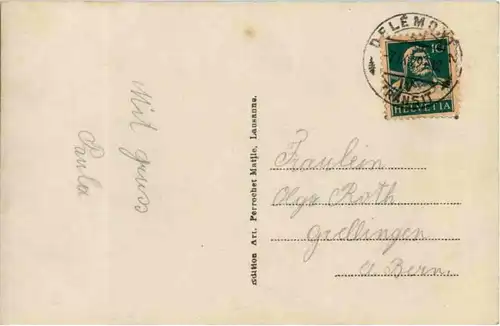 DELÉMONT
TRANSIT
10
HELVETIA
Mit gruss
Paula
Edition Art. Perrochet Matile, Lausanne.
Fräulein
Olga Roth
Grellingen
b. Bern.